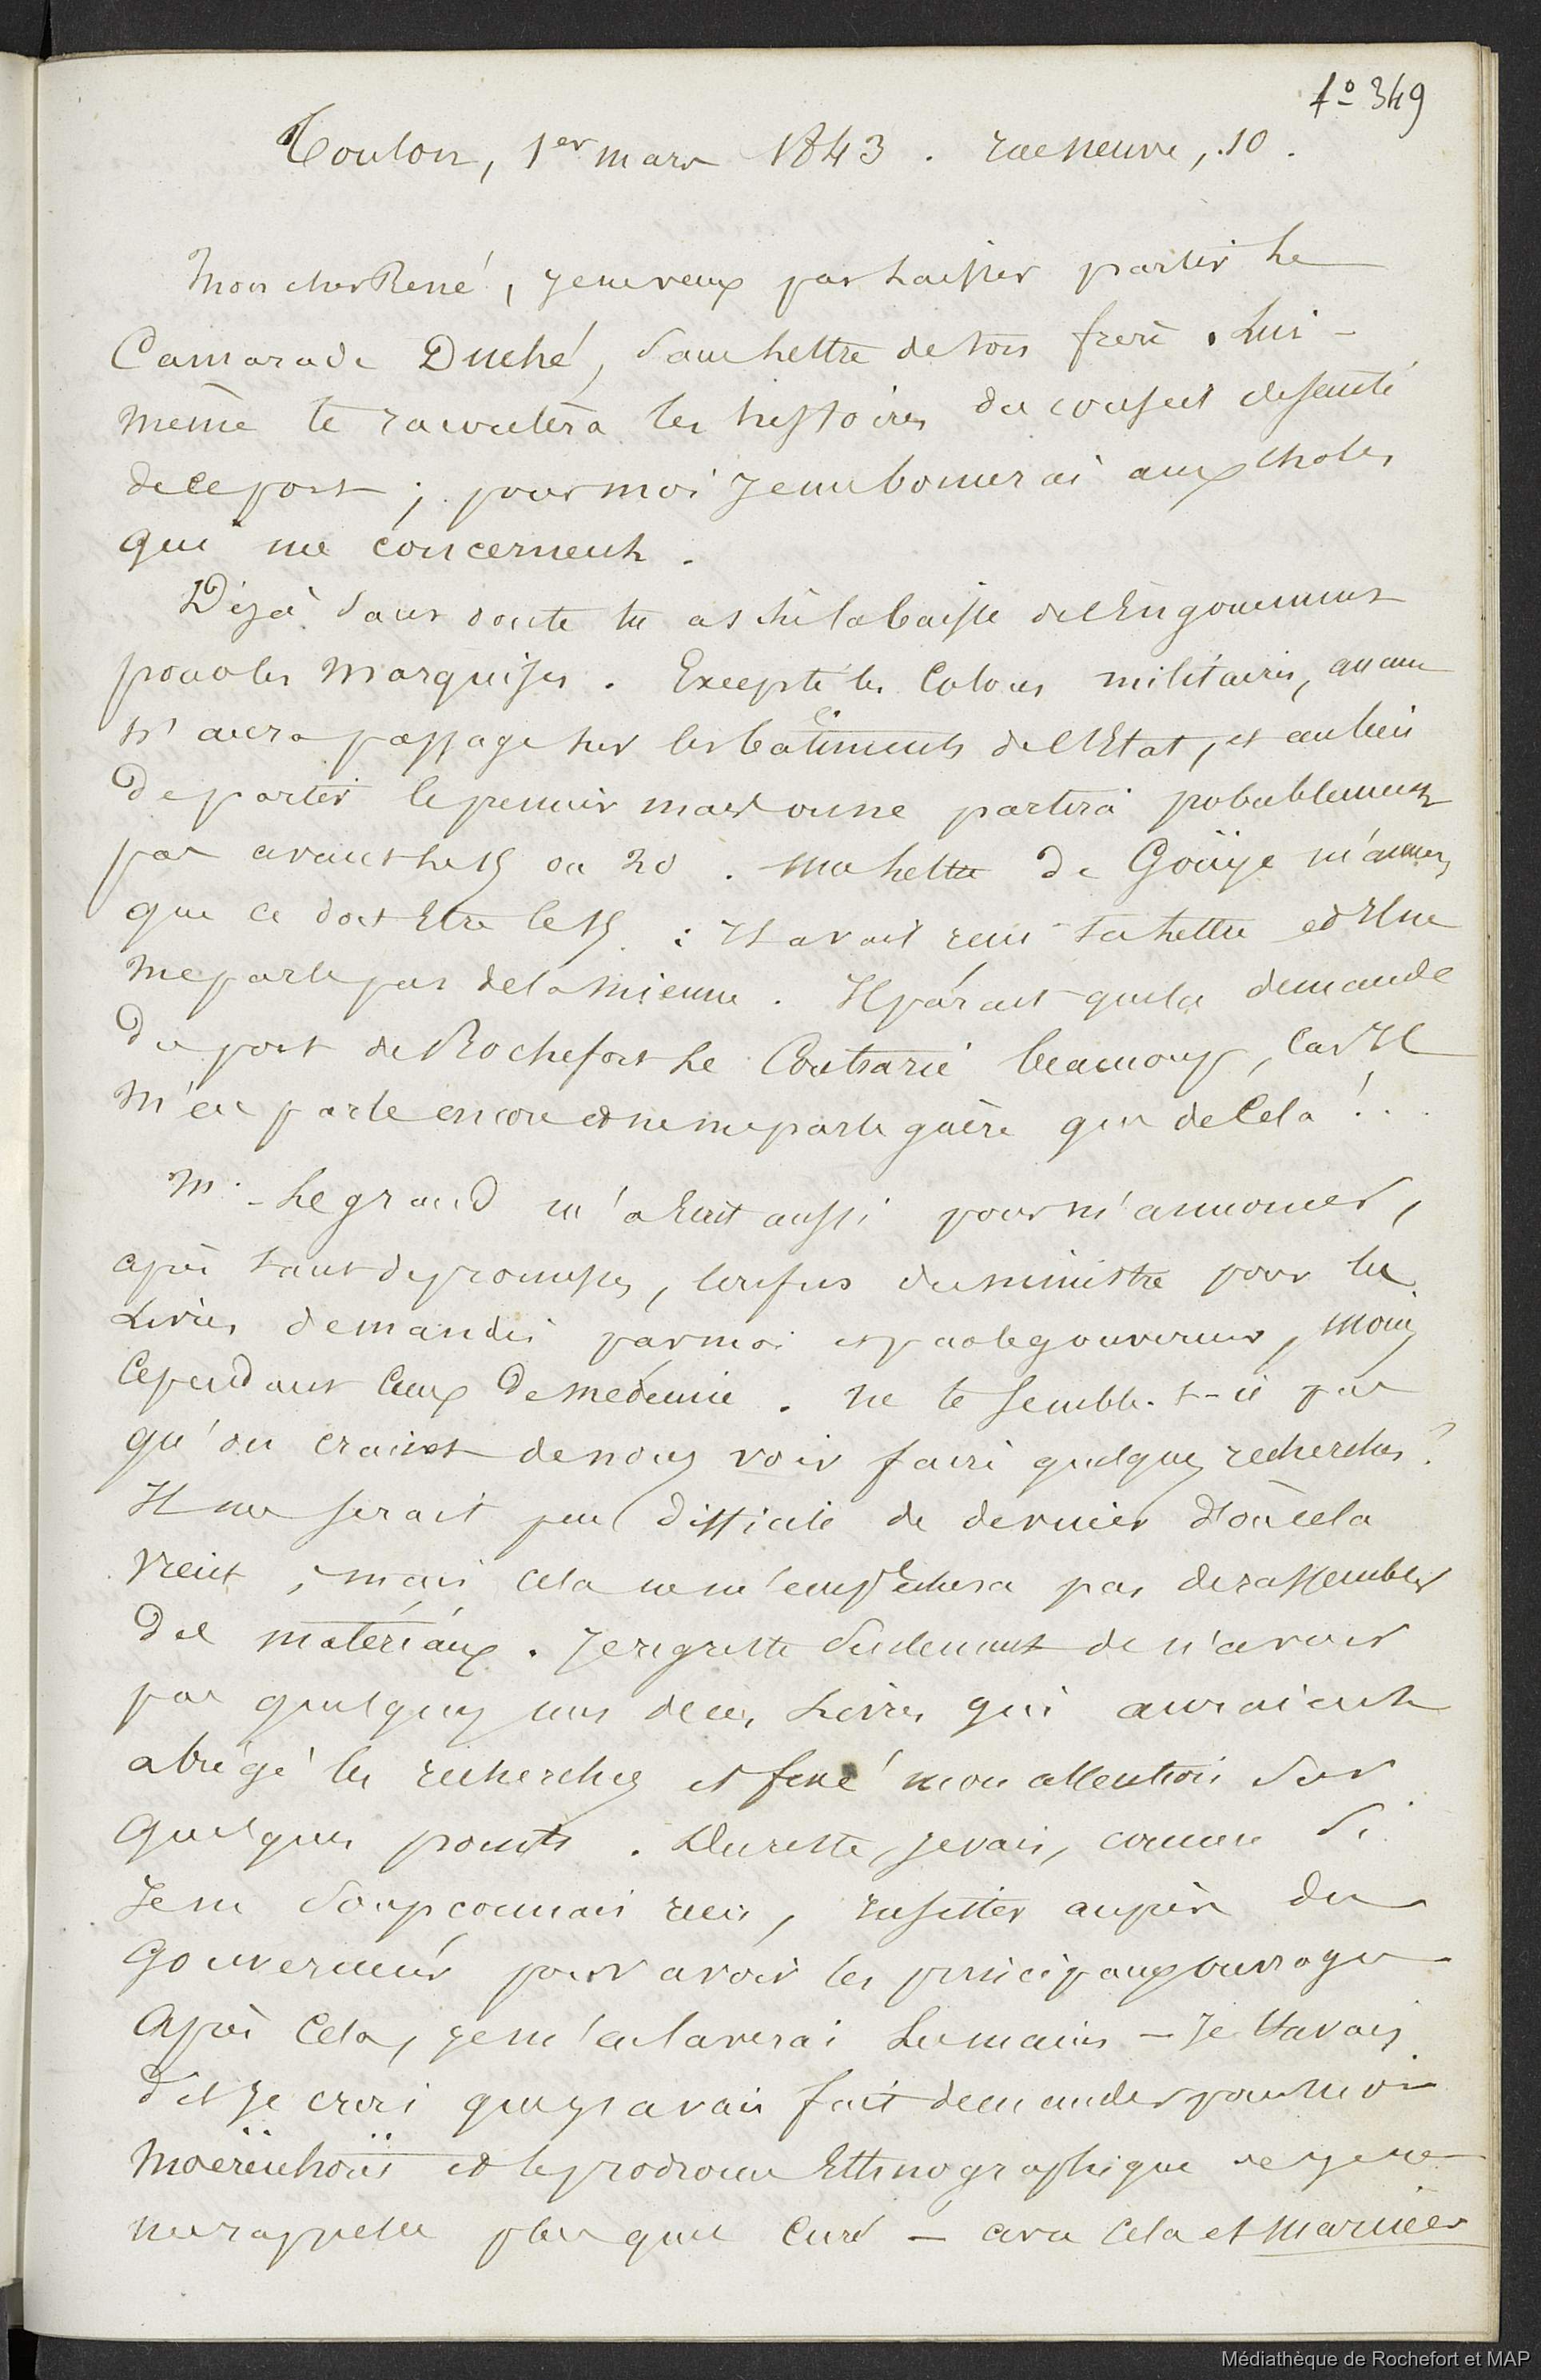 fº 349
Toulon, 1er mars 1843. rue neuve, 10.
Mon cher René, je ne veux pas laisser partir le
Camarade Duché, sans lettre de ton frère. Lui-
même te racontera les histoires du conseil de santé
de ce port ; pour moi je me bornerai aux choses
qui me concernent.
Déjà sans doute tu as sû la baisse de l'Engouement
pour les Marquises. Excepté les Colons militaires, aucun
n'aura passage sur les bâtiments de l'Etat, et au lieu
de partir le premier mars on ne partira probablement
pas avant le 15 ou 20. Ma lettre de Goüye m'annonce
que ce doit Etre le 15 : Il avait reçu ta lettre et Il ne
me parle pas de la mienne. Il parait que la demande
du port de Rochefort le Contrarie beaucoup, Car Il
m'en parle encore et ne me parle guère que de Cela !..
Mr Legrand m'a Ecrit aussi pour m'annoncer,
après tant de promesses, le refus du ministre pour les
Livres demandés par moi et par le gouverneur, moins
Cependant Ceux de médecine. Ne te semble-t-il pas
qu'on craint de nous voir faire quelques recherches ?
Il me serait peu difficile de deviner d'où cela
vient, mais cela ne m'empêchera pas de rassembler
des matériaux. Je regrette seulement de n'avoir
pas quelques uns de ces Livres qui auraient
abrégé les recherches et fixé mon attention sur
quelques points. Du reste, je vais, comme si
Je ne soupçonnais rien, insister auprès du
gouverneur pour avoir les principaux ouvrages
Après Cela, je m'en laverai Les mains — Je t'avais
dit je crois que j'avais fait demander pour moi
Moërenhoüt et le prodrome Ethnographique de je ne
me rappelle plus quel Curé — avec Cela et Mariner